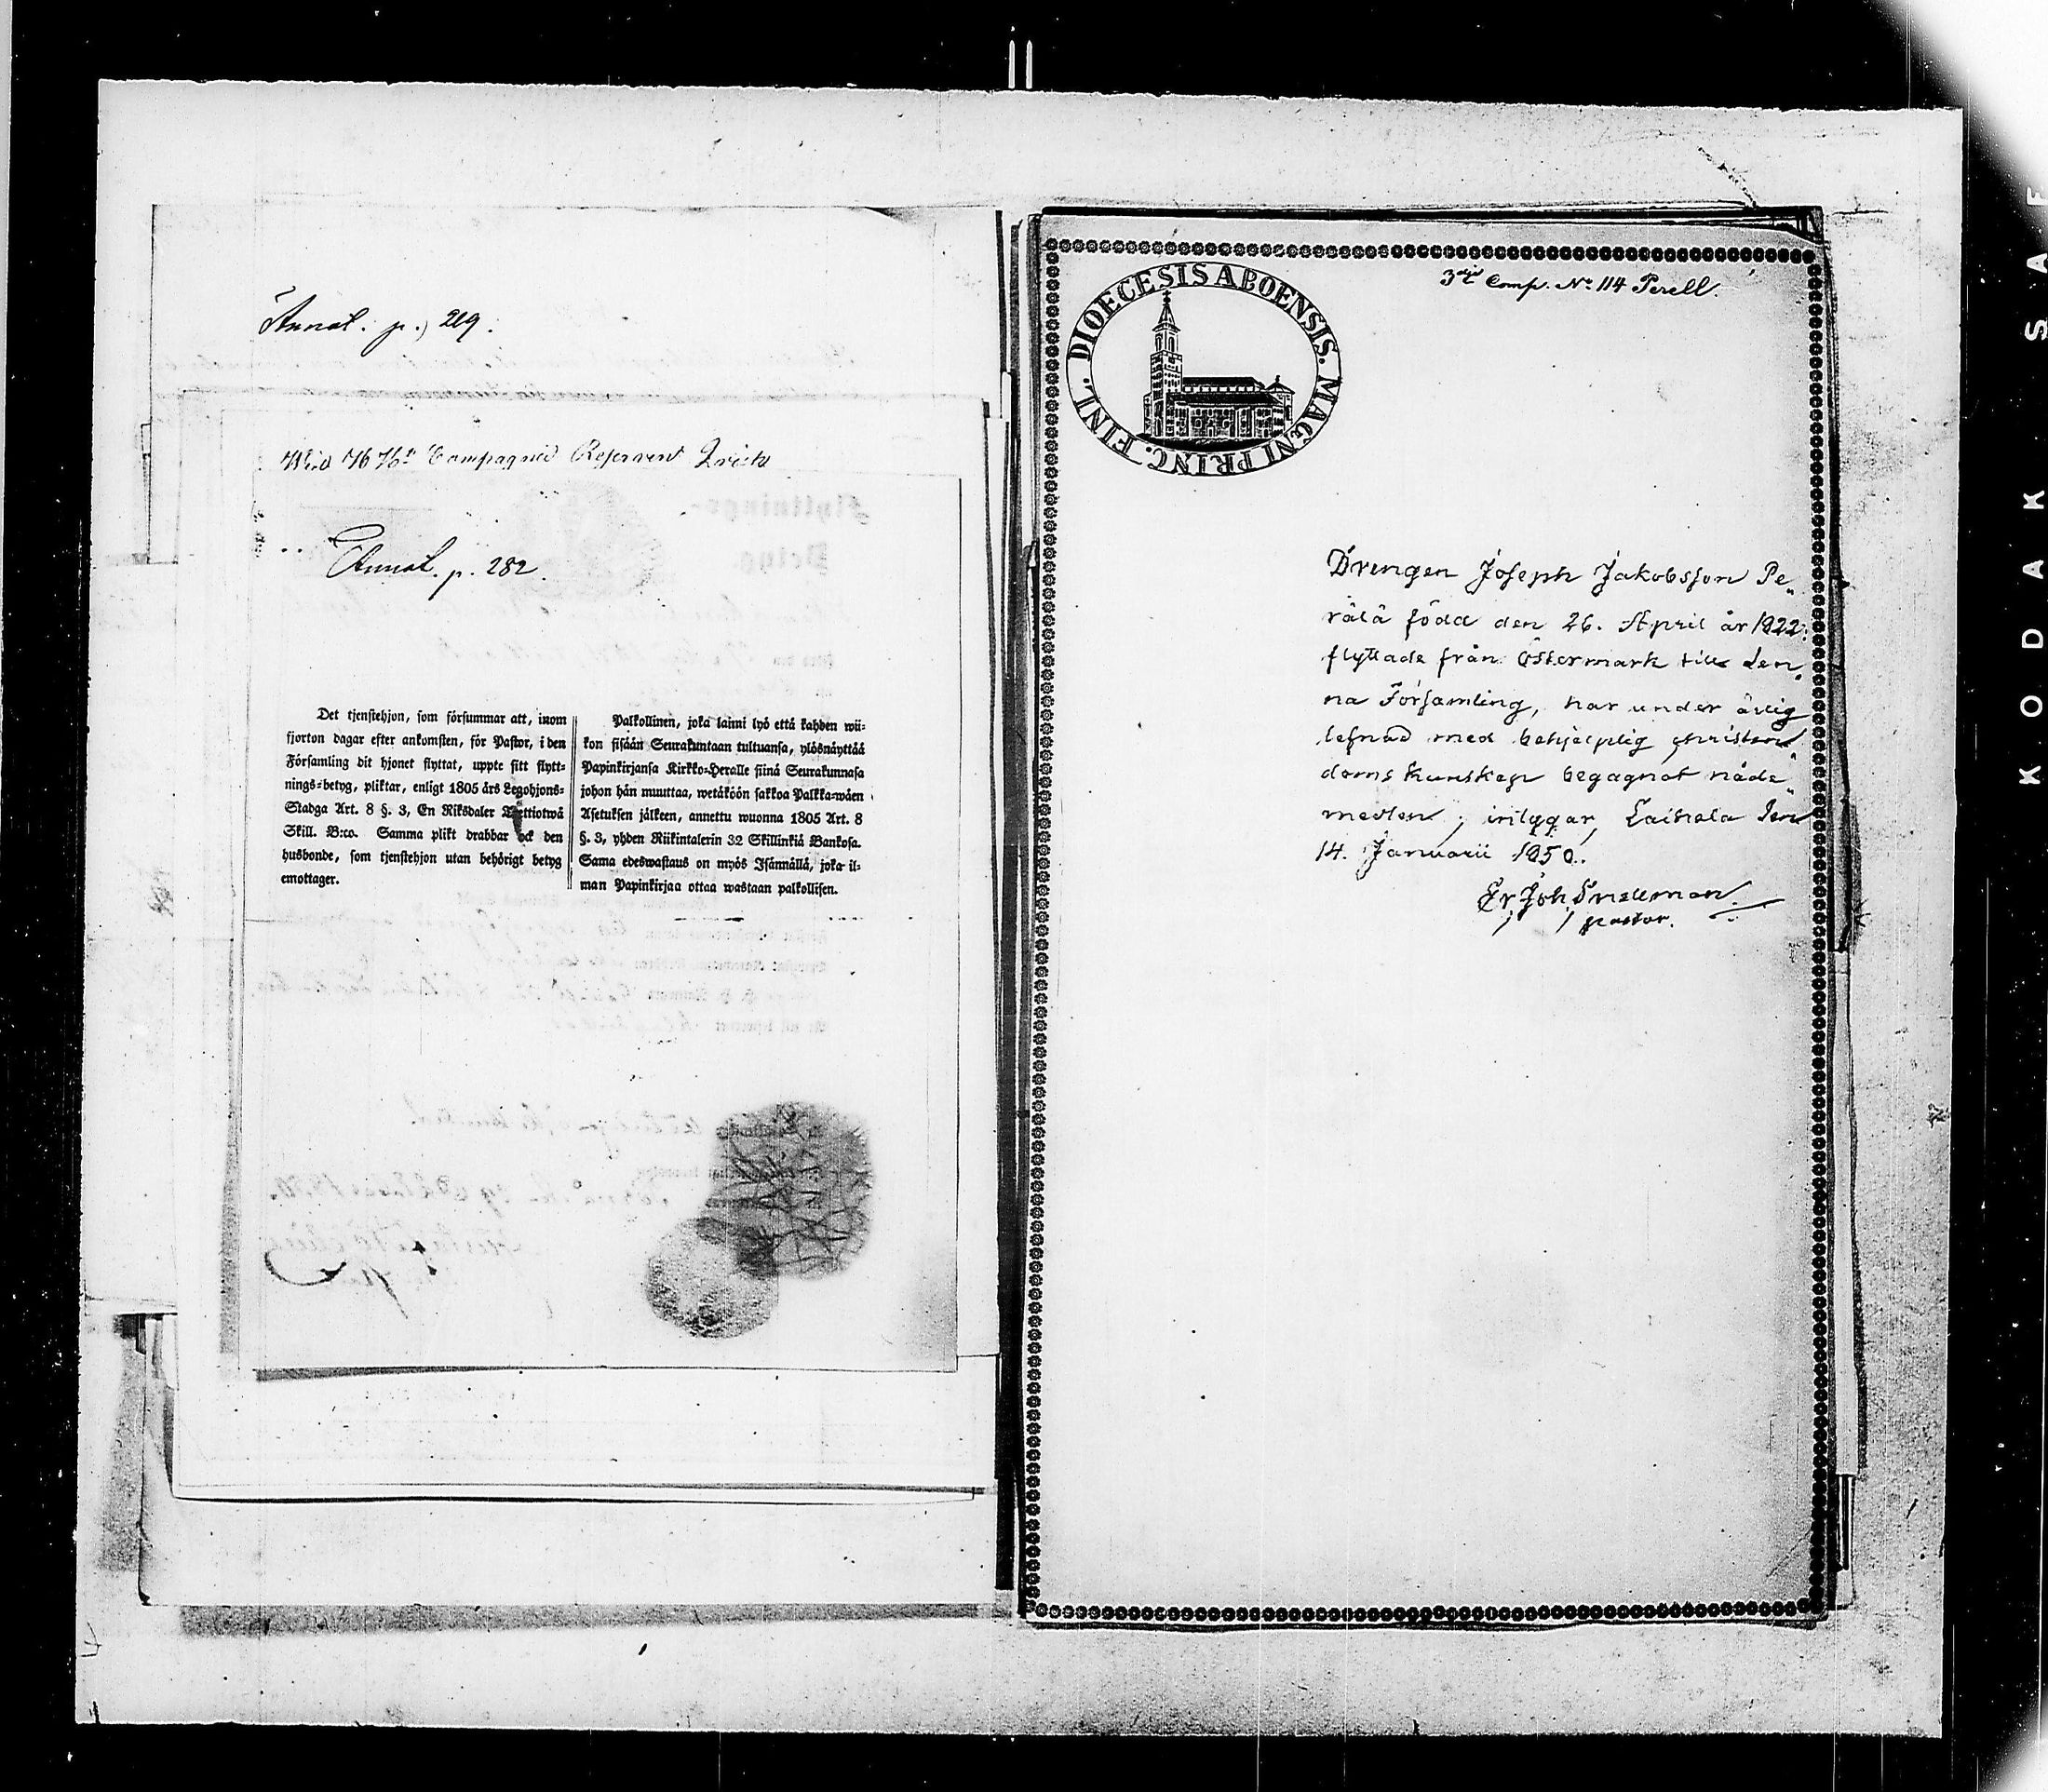 Annot. p. 219.
Compagnie Reservent
Annot. p. 282.
Det tjenstehjon, som försummar att, inom
fjorton dagar efter ankomsten, för Pastor, i den
Församling dit hjonet flyttat, uppte sitt flytt-
nings-betyg, pliktar, enligt 1805 års Legohjons-
Stadga Art. 8 §. 3, En Riksdaler Trettiotwå
Skill. B:co. Samma plikt drabbar ock den
husbonde, som tjenstehjon utan behörigt betyg
emottager.
Palkollinen, joka laimi lyö että kahden wii-
kon sisään Seurakuntaan tultuansa, ylösnäyttää
Papinkirjansa Kirkko-Heralle siinä Seurakunnasa
johon hän muuttaa, wetäköön sakkoa Palkka-wäen
Asetuksen jälkeen, annettu wuonna 1805 Art. 8
§. 3, yhden Riikintalerin 32 Skillinkiä Bankosa.
Sama edeswastaus on myös Isännällä, joka il-
man Papinkirjaa ottaa wastaan palkollisen.
3dje Comp. No 114 Perell.
DIOECESIS ABOENSIS. MAGNI PRINC. FINL.
Drengen Joseph Jakobsson Pe-
rälä född den 26. April år 1822;
flyttade från Östermark till den-
na Församling, har under ärlig
lefnad med behjelplig christen-
doms kunskap begagnat nåde-
medlen; intygar, Laihela den
14. Januarii 1850.
Er Joh Snellman.
pastor.
KODAK SAFE